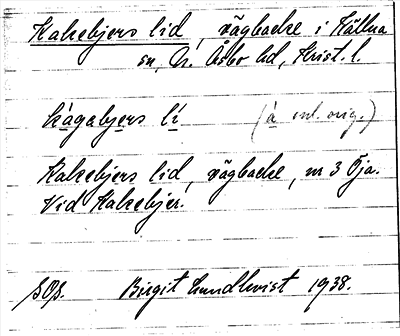 Kakebjers lid, vägbacke i Källna
sn, N. Åsbo hd, Krist. l.
kàgabyers lí (à enl. orig.)
Kakebjers lid, vägbacke, nr 3 Öja.
Vid Kakebjer.
SOB. Birgit Lundkvist 1938.